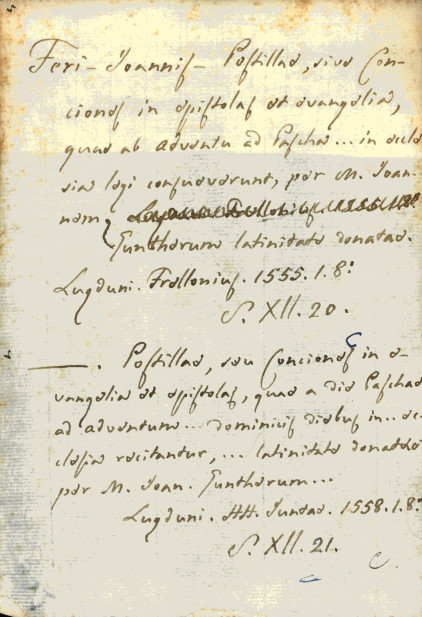 Feri - Joannis - Postillae, sive Con-
ciones in epistolas et evangelia,
quae ab adventu ad Pascha... in eccle
sia legi consueverunt, per M. Joan-
nem
Guntherum latinitate donatae.
Lugduni. Frellonius. 1555. 1. 8º
S. XII. 20.
——. Postillae, seu Conciones in e-
vangelia et epistolas, quae a die Paschae
ad adventum... dominicis diebus in.. ec-
clesia recitantur, ... latinitate donatae
per M. Joan. Guntherum...
Lugduni. HH. Juntae. 1558. 1. 8º
S. XII. 21.
C.